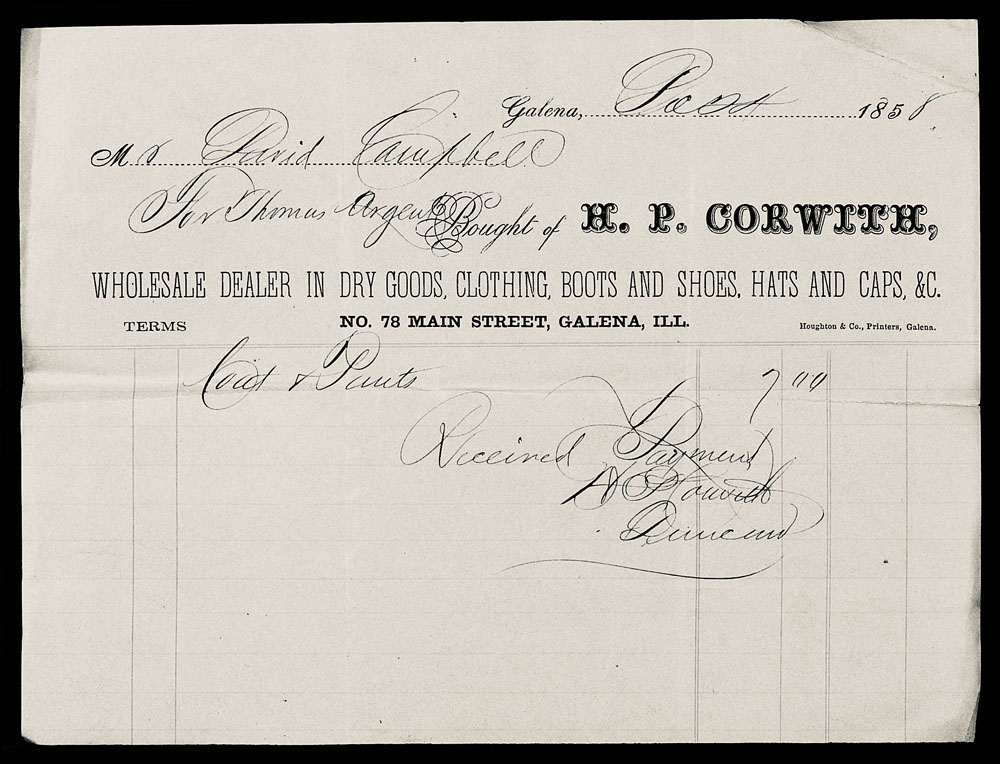 Galena, 1858
Mr David Campbell
For Thomas Argent Bought of H. P. CORWITH,
WHOLESALE DEALER IN DRY GOODS, CLOTHING, BOOTS AND SHOES, HATS AND CAPS, &C.
TERMS NO. 78 MAIN STREET, GALENA, ILL. Houghton & Co., Printers, Galena.
Coat & Pants 7 00
Received Payment
H P Corwith
Duncan